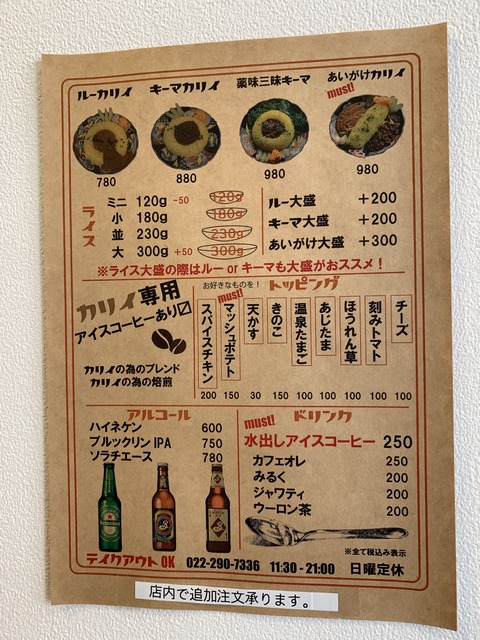 ルーカリイ キーマカリイ 薬味三昧キーマ あいがけカリイ
must!
780 880 980 980
ライス
ミニ 120g -50 120g
小 180g 180g
並 230g 230g
大 300g +50 300g
ルー大盛 +200
キーマ大盛 +200
あいがけ大盛 +300
※ライス大盛の際はルー or キーマも大盛がおススメ！
カリイ専用
アイスコーヒーあり☑
カリイの為のブレンド
カリイの為の焙煎
お好きなものを！ トッピング
must!
スパイスチキン 200
マッシュポテト 150
天かす 30
きのこ 150
温泉たまご 100
あじたま 100
ほうれん草 100
刻みトマト 100
チーズ 100
アルコール
ハイネケン 600
ブルックリン IPA 750
ソラチエース 780
Heineken
must! ドリンク
水出しアイスコーヒー 250
カフェオレ 250
みるく 200
ジャワティ 200
ウーロン茶 200
※全て税込み表示
テイクアウトOK 022-290-7336 11:30-21:00 日曜定休
店内で追加注文承ります。